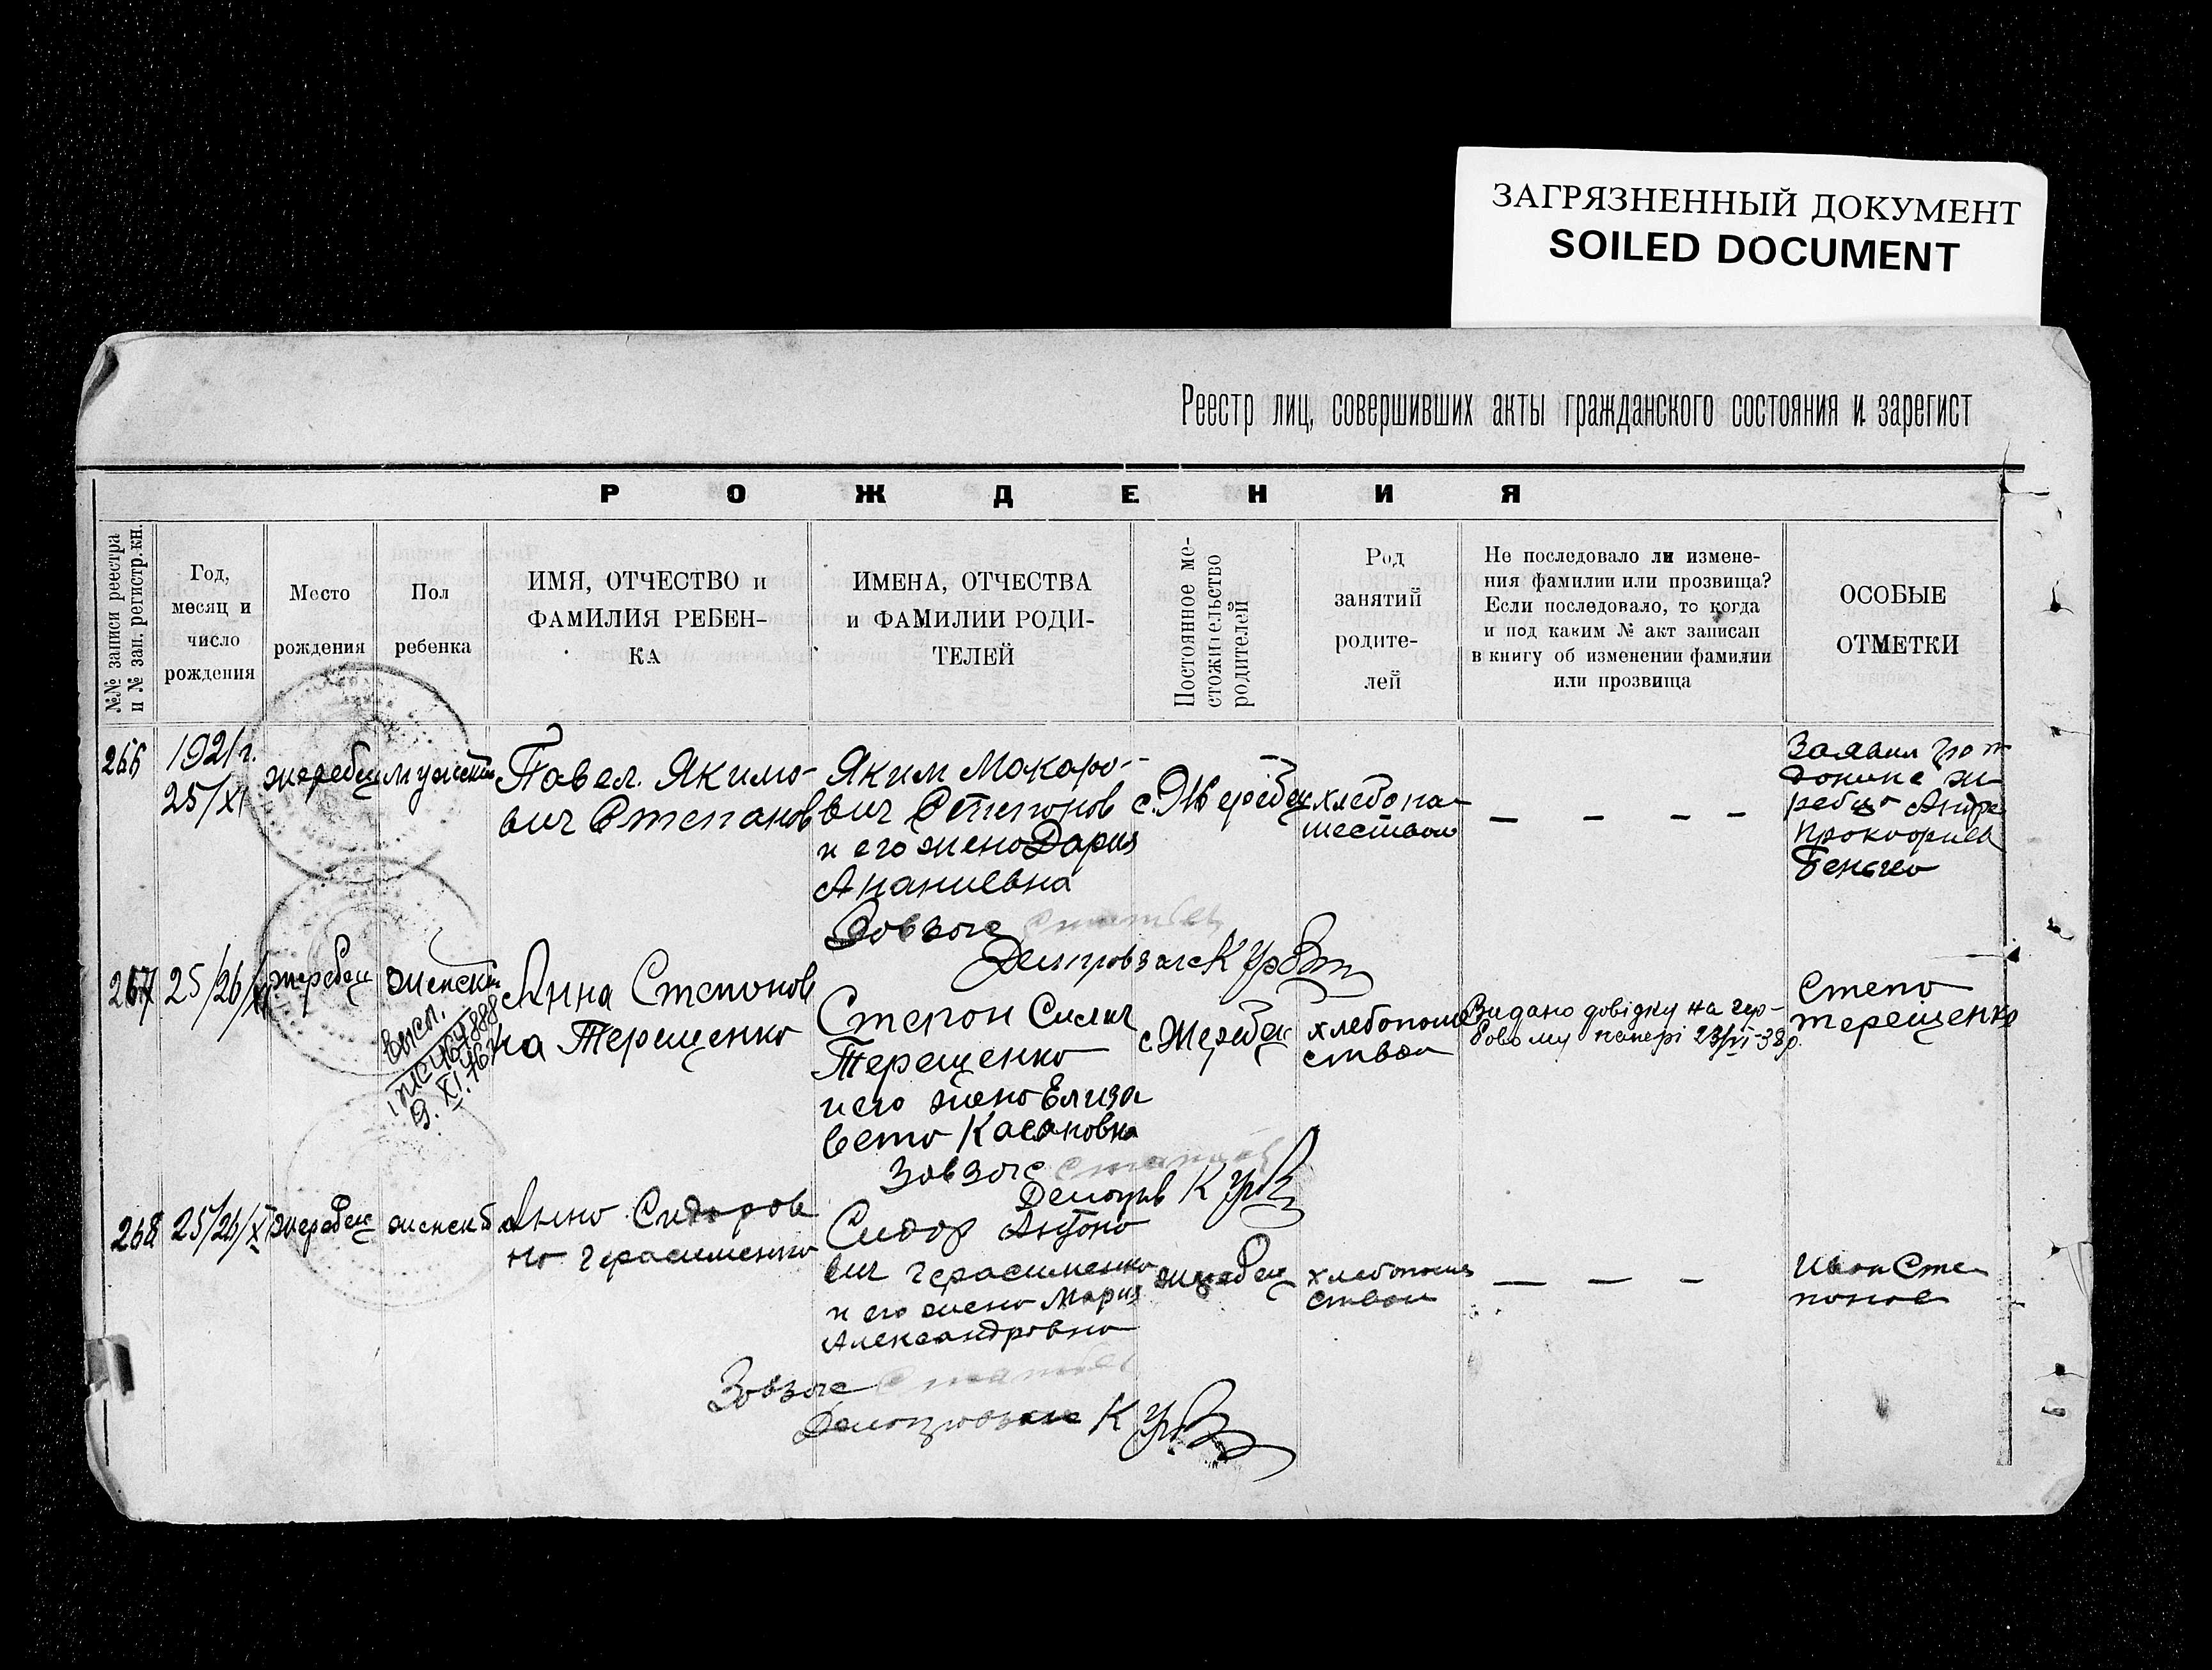 ЗАГРЯЗНЕННЫЙ ДОКУМЕНТ
SOILED DOCUMENT
Реестр лиц, совершивших акты гражданского состояния и зарегист
РОЖДЕНИЯ
№№ записи реестра
и № зап. регистр.кн.
Год,
месяц и
число
рождения
Место
рождения
Пол
ребенка
ИМЯ, ОТЧЕСТВО и
ФАМИЛИЯ РЕБЕН-
КА
ИМЕНА, ОТЧЕСТВА
и ФАМИЛИИ РОДИ-
ТЕЛЕЙ
Постоянное ме-
стожительство
родителей
Род
занятий
родите-
лей
Не последовало ли измене-
ния фамилии или прозвища?
Если последовало, то когда
и под каким № акт записан
в книгу об изменении фамилии
или прозвища
ОСОБЫЕ
ОТМЕТКИ
266
1921г.
25/XI
Жеребец
мужской
Павел Якимо-
вич Степанов
Яким Макаро-
вич Степанов
и его жена Дария
Ананиевна
с. Жеребец
хлебопа-
шеством
— — — —
Заявил
Андре
Завзагс
267
25/26/XI
Жеребец
женский
высл.
9. XI.
Анна Степанов
на Терещенко
Степан
Терещенко
и его жена Елиза
вета Касяновна
с. Жеребец
хлебопаше
ством
Видано довідку на гер-
бовому папері 23/VI-38р.
Степа
Терещенко
Завзагс
268
25/26/XI
Жеребец
женский
Анна Сидоров
на Герасименко
Сидор Антоно
вич Герасименко
и его жена Мария
Александровна
Жеребец
хлебопаше
ством
— — —
Иван Сте
панов
Завзагс